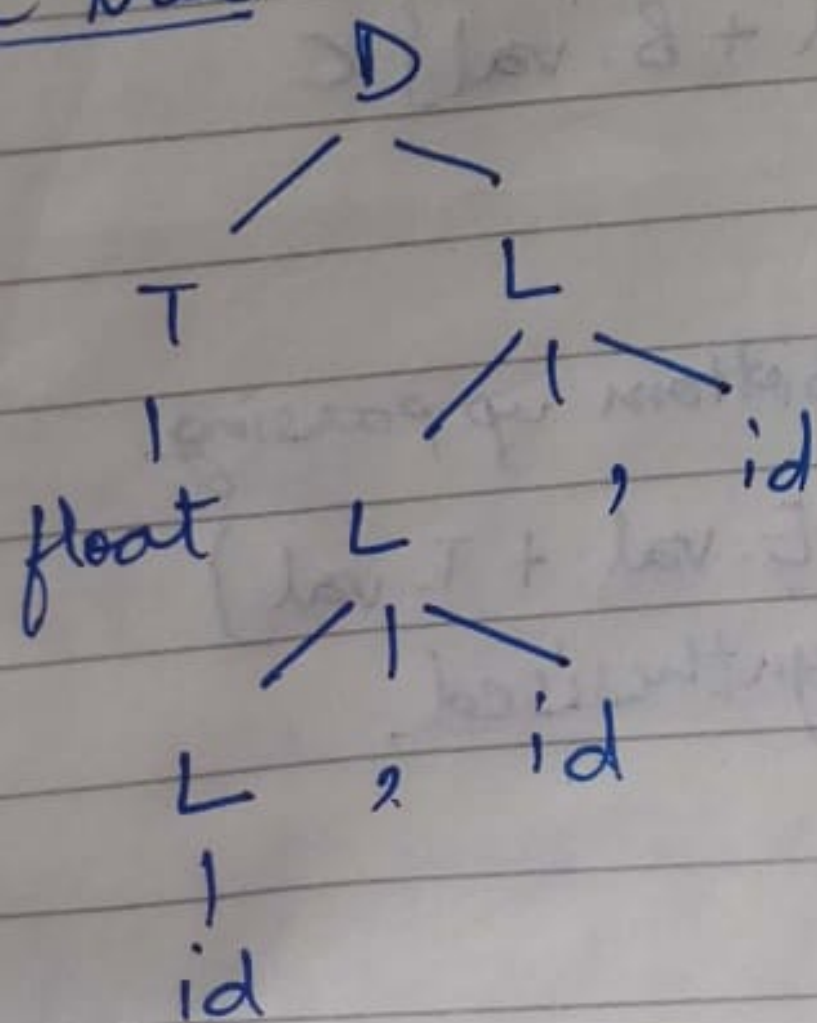 D
T L
float L , id
L , id
id